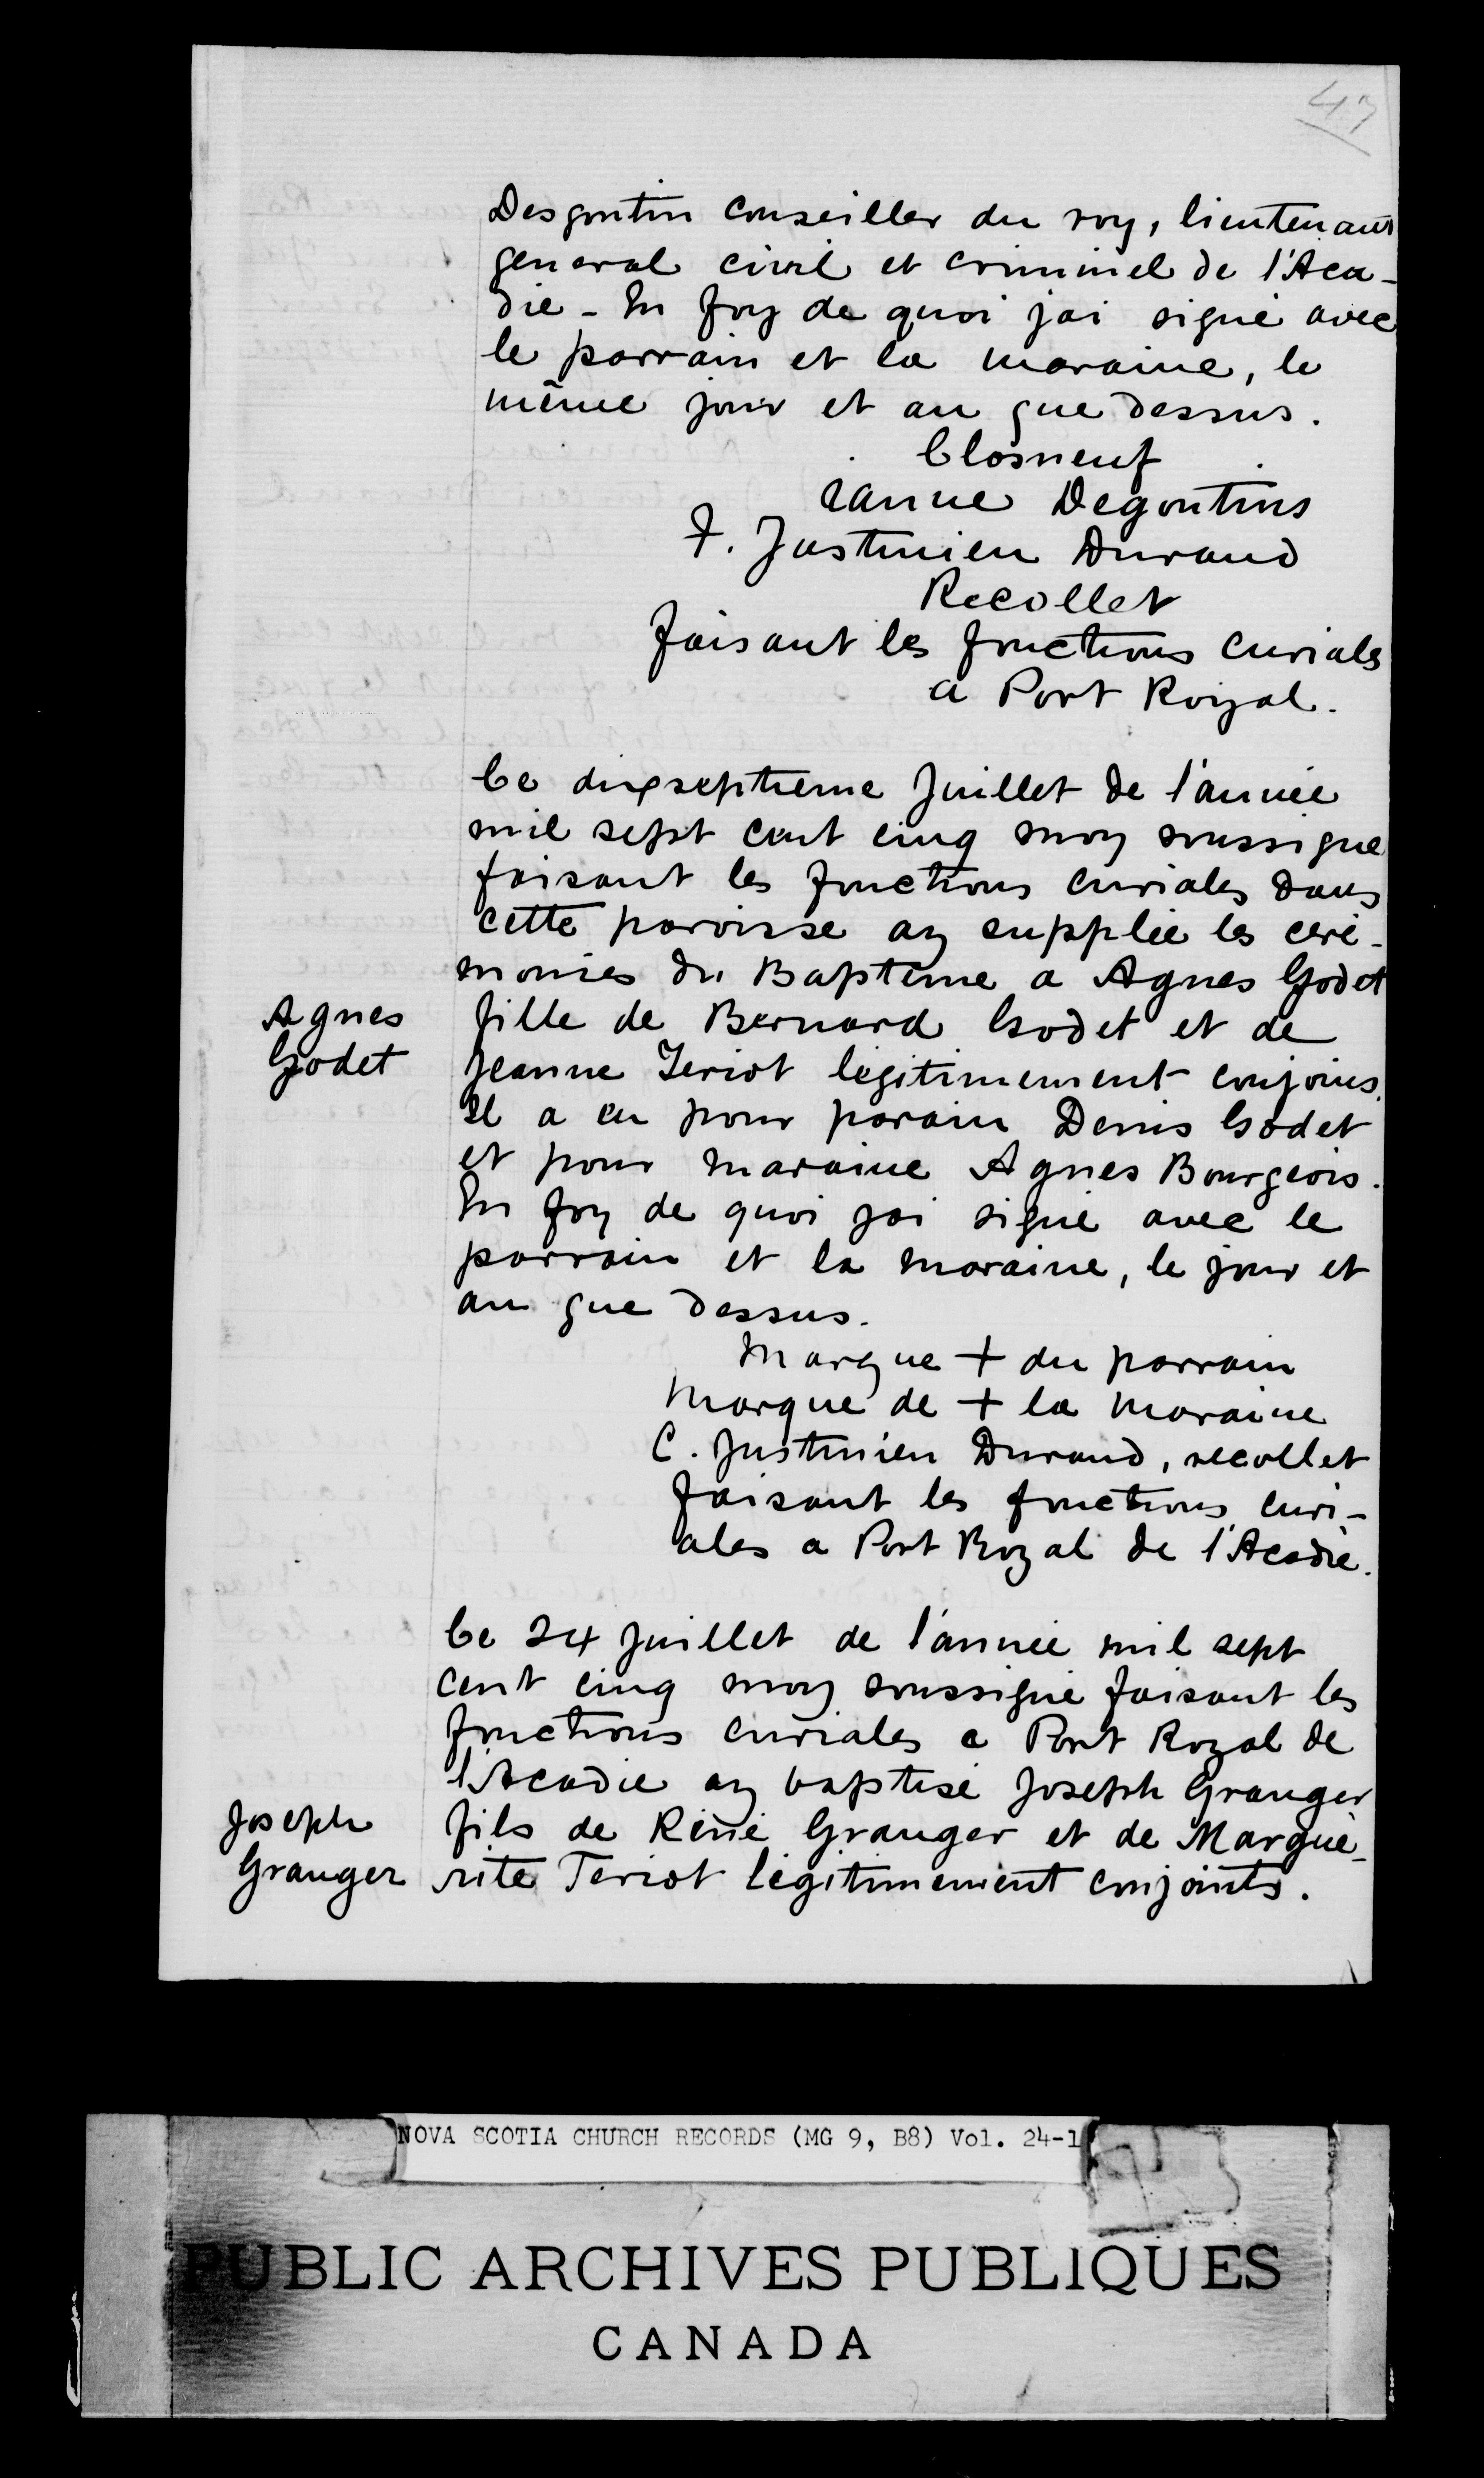 47
Desgoutin conseiller du roy, lieutenant
general civil et criminel de l'Aca-
die - En foy de quoi jai signé avec
le parrain et la maraine, le
même jour et an que dessus.
Closneuf
Janne Degoutins
F. Justinien Durand
Recollet
faisant les fonctions curiales
a Port Royal.
Ce dixseptieme Juillet de l'année
mil sept cent cinq moy soussigne
faisant les fonctions curiales dans
cette paroisse ay supplée les cere-
monies du Bapteme a Agnes Godet
Agnes
Godet
fille de Bernard Godet et de
Jeanne Teriot legitimement conjoins.
Il a eu pour parain Denis Godet
et pour maraine Agnes Bourgeois.
En foy de quoi jai signé avec le
parrain et la maraine, le jour et
an que dessus.
Marque + du parrain
Marque de + la maraine
C. Justinien Durand, recollet
faisant les fonctions curi-
ales a Port Royal de l'Acadie.
Ce 24 Juillet de l'année mil sept
cent cinq moy soussigné faisant les
fonctions curiales a Port Royal de
l'Acadie ay baptisé Joseph Granger
Joseph
Granger
fils de Réné Granger et de Margue-
rite Teriot légitimement conjoints.
NOVA SCOTIA CHURCH RECORDS (MG 9, B8) Vol. 24-1
PUBLIC ARCHIVES PUBLIQUES
CANADA